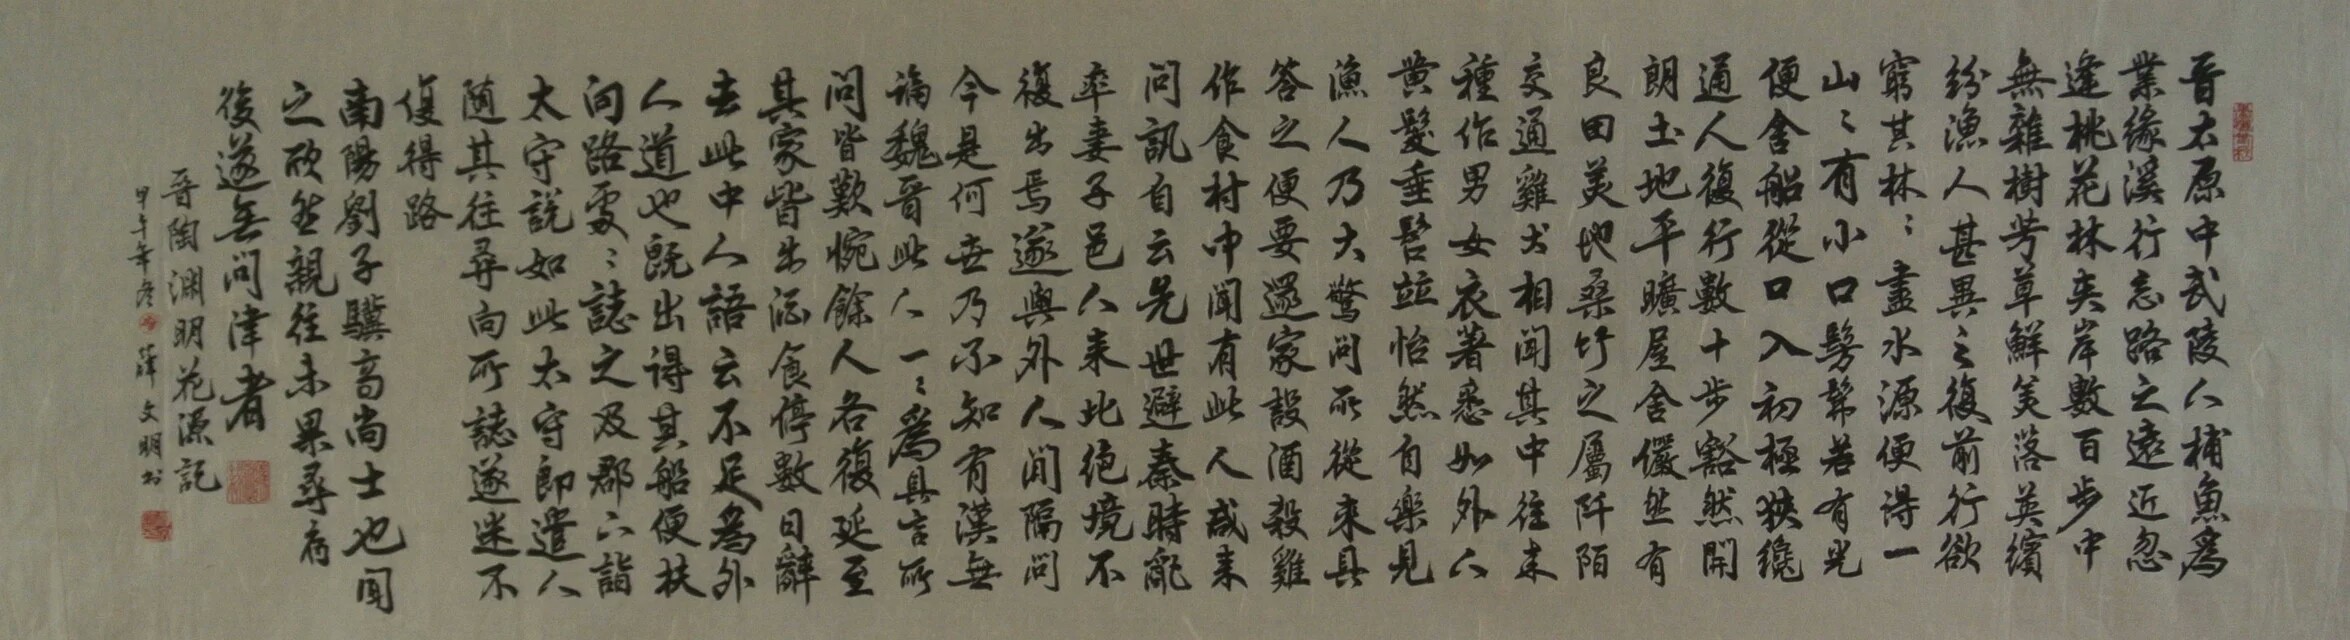 晋太原中武陵人捕魚為
業緣溪行忘路之遠近忽
逢桃花林夾岸數百步中
無雜樹芳草鮮美落英繽
紛漁人甚異之復前行欲
窮其林〻盡水源便得一
山〻有小口髣髴若有光
便舍船從口入初極狹纔
通人復行數十步豁然開
朗土地平曠屋舍儼然有
良田美地桑竹之屬阡陌
交通雞犬相聞其中往来
種作男女衣著悉如外人
黄髮垂髫並怡然自樂見
漁人乃大驚问所從来具
答之便要還家設酒殺雞
作食村中闻有此人咸来
问訊自云先世避秦時亂
率妻子邑人来此绝境不
復出焉遂與外人间隔问
今是何世乃不知有漢無
論魏晋此人一〻為具言所
问皆歎惋餘人各復延至
其家皆出酒食停數日辭
去此中人語云不足為外
人道也既出得其船便扶
向路處〻誌之及郡下詣
太守説如此太守即遣人
随其往尋向所誌遂迷不
復得路
南陽劉子驥高尚士也闻
之欣然親往未果尋病
後遂无问津者
晋陶渊明花源記
甲午年冬 薛文明书